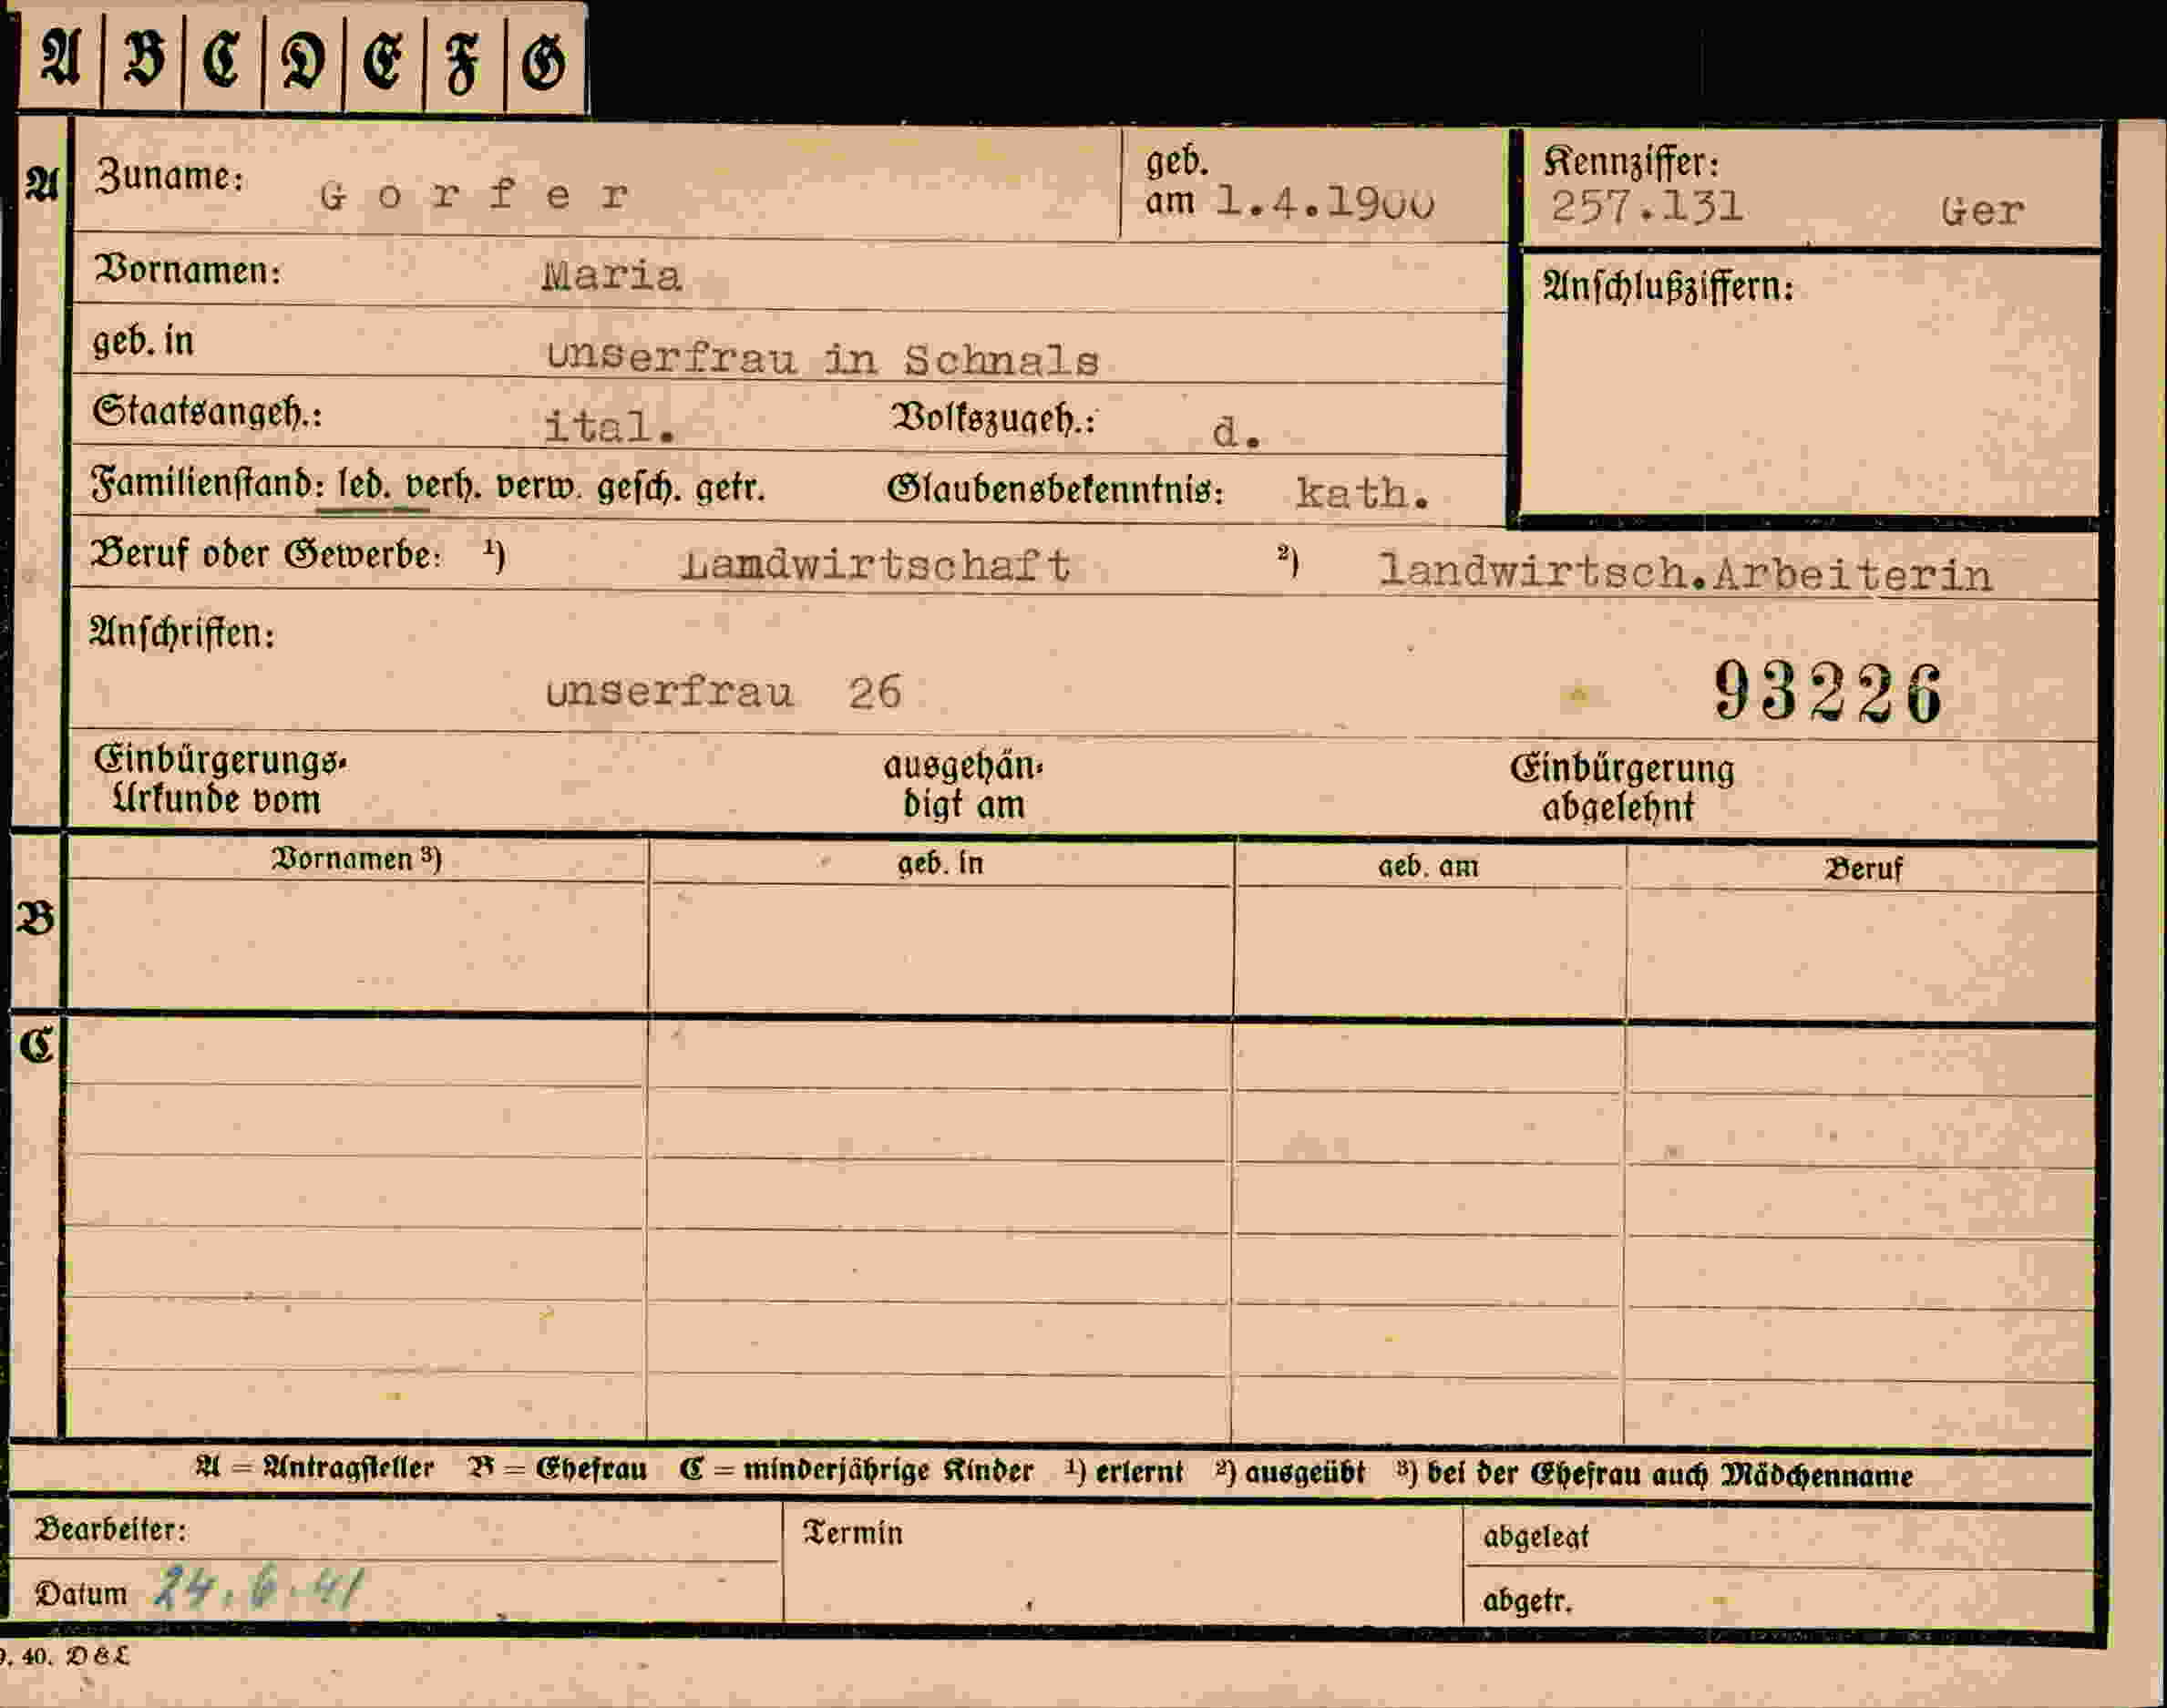 A B C D E F G
A Zuname: Gorfer geb. am 1.4.1900 Kennziffer: 257.131 Ger
Vornamen: Maria Anschlußziffern:
geb. in Unserfrau in Schnals
Staatsangeh.: ital. Volkszugeh.: d.
Familienstand: led. verh. verw. gesch. getr. Glaubensbekenntnis: kath.
Beruf oder Gewerbe: 1) Landwirtschaft 2) landwirtsch.Arbeiterin
Anschriften:
Unserfrau 26 93226
Einbürgerungs- ausgehän- Einbürgerung
Urkunde vom digt am abgelehnt
Vornamen 3) geb. in geb. am Beruf
B
C
A = Antragsteller B = Ehefrau C = minderjährige Kinder 1) erlernt 2) ausgeübt 3) bei der Ehefrau auch Mädchenname
Bearbeiter: Termin abgelegt
Datum 24.6.41 abgetr.
40. D & L